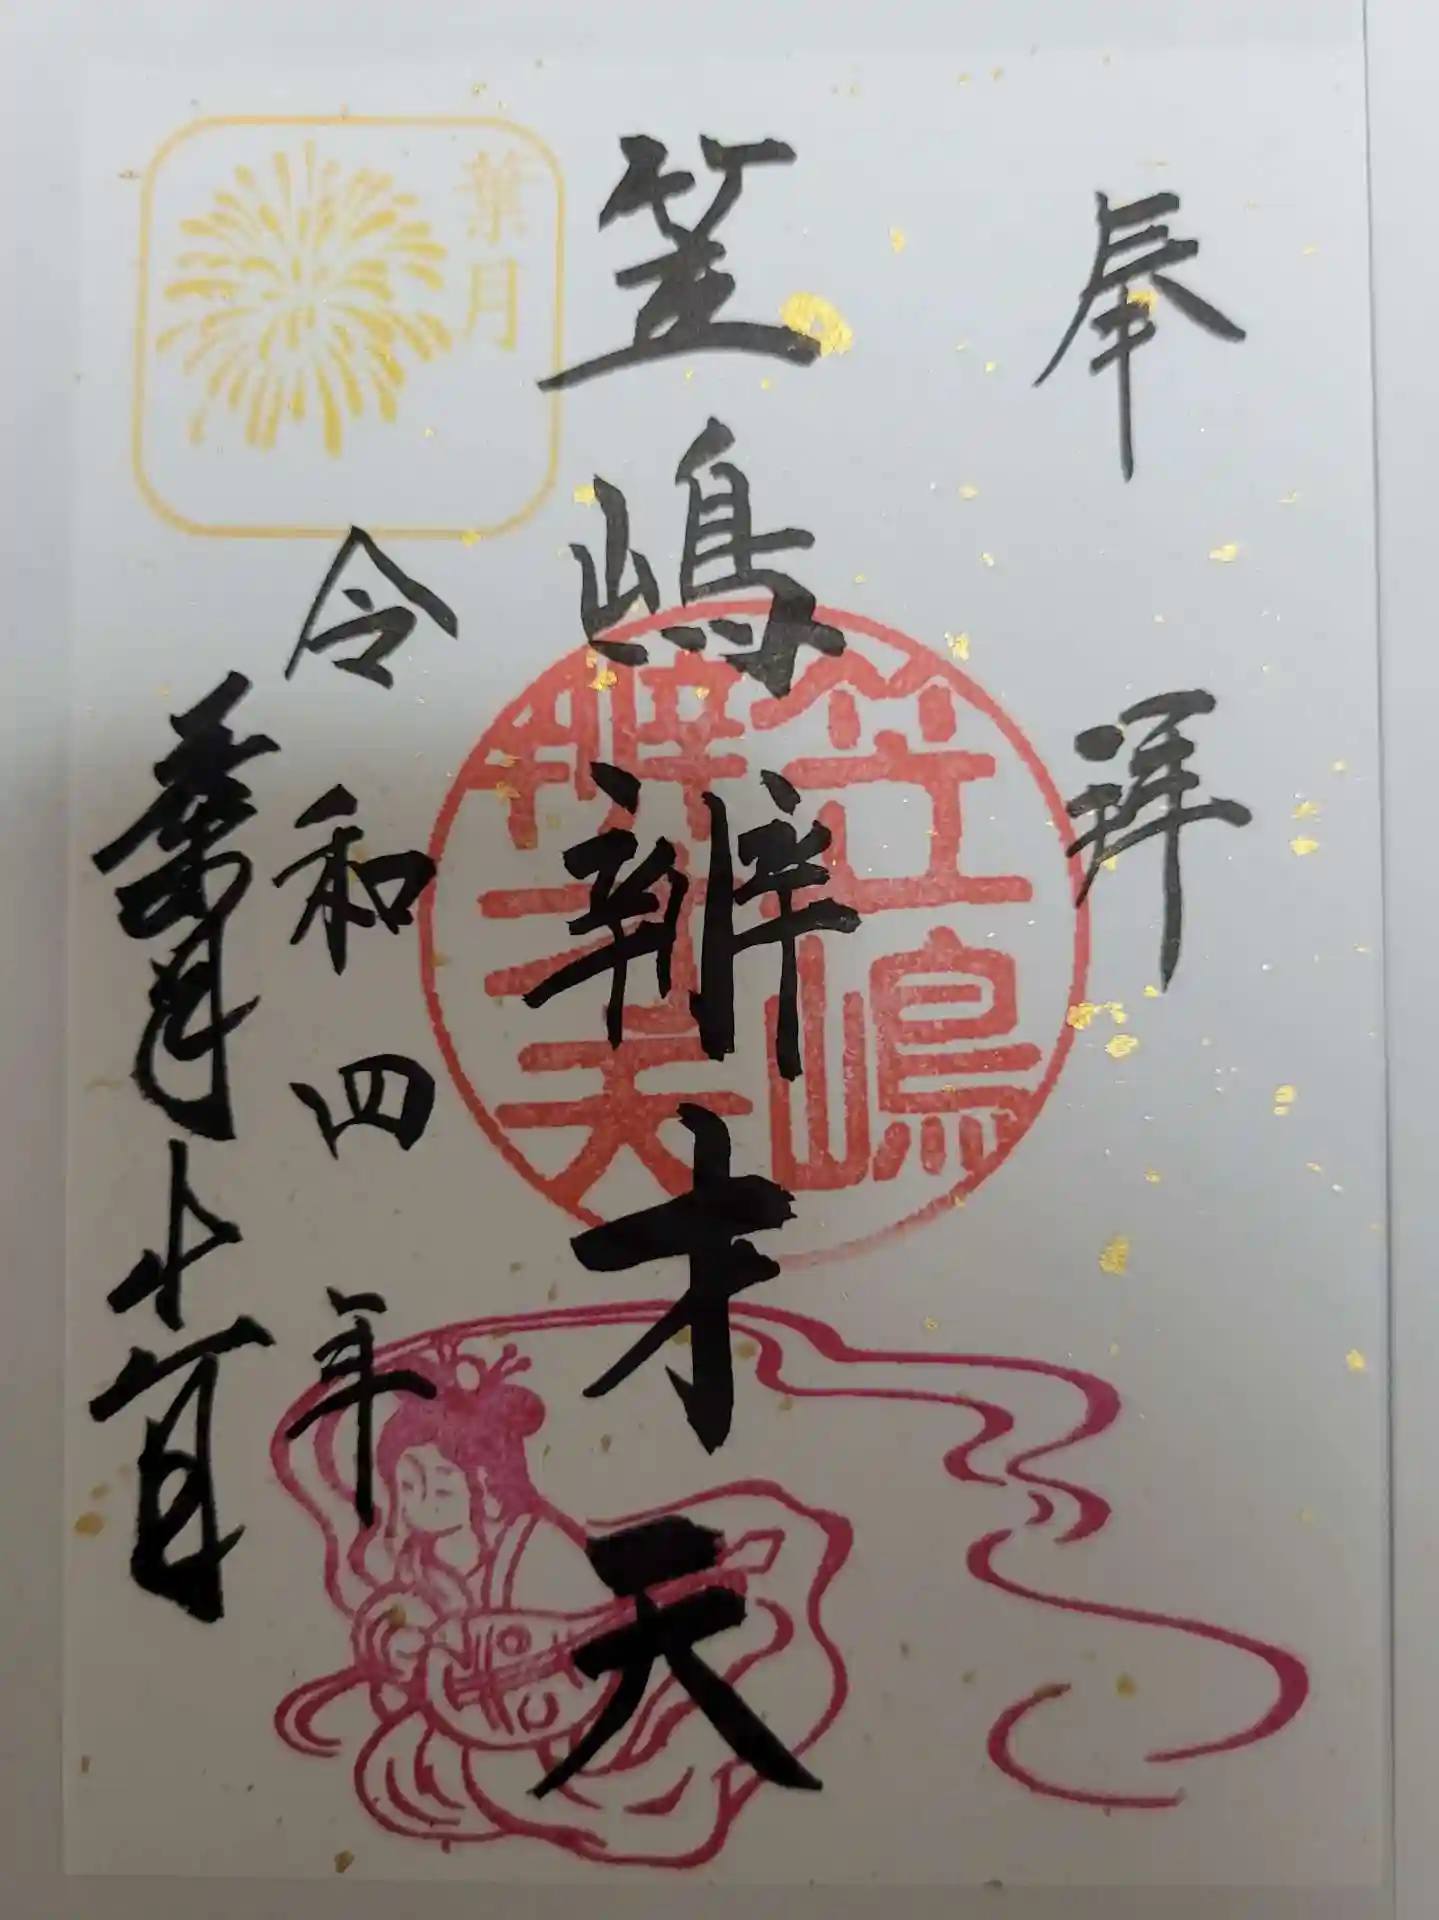 奉拝
笠嶋辨才天
笠嶋
辨才天
葉月
令和四年
葉月十一日